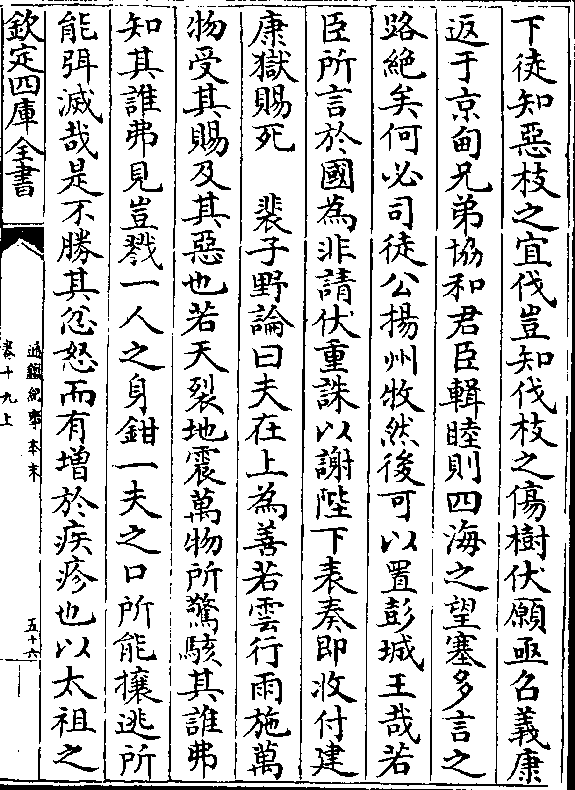 下徒知惡枝之宜伐豈知伐枝之傷樹伏願亟召義康
返于京甸兄弟協和君臣輯睦則四海之望塞多言之
路絶矣何必司徒公揚州牧然後可以置彭城王哉若
臣所言於國為非請伏重誅以謝陛下表奏即收付建
康獄賜死　裴子野論曰夫在上為善若雲行雨施萬
物受其賜及其惡也若天裂地震萬物所驚駭其誰弗
知其誰弗見豈戮一人之身鉗一夫之口所能攘逃所
能弭滅哉是不勝其忿怒而有增於疾疹也以太祖之
欽定四庫全書
通鑑紀事本末
卷十九上
五十六